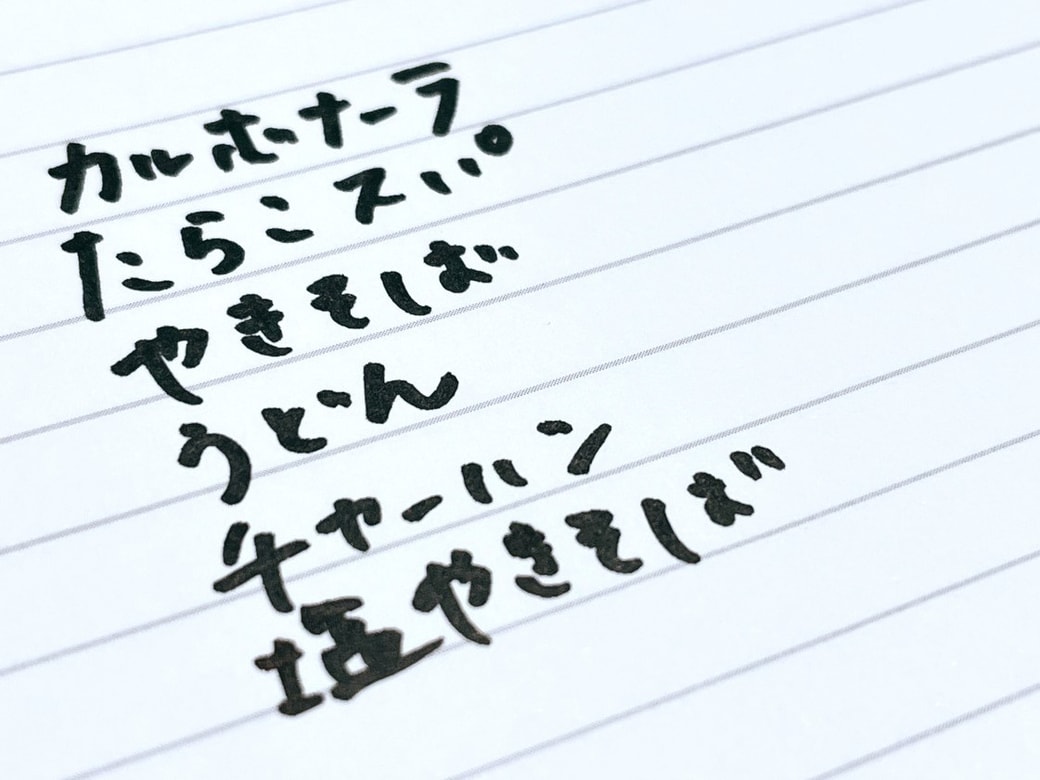 カルボナーラ
たらこスパ
やきそば
うどん
チャーハン
塩やきそば